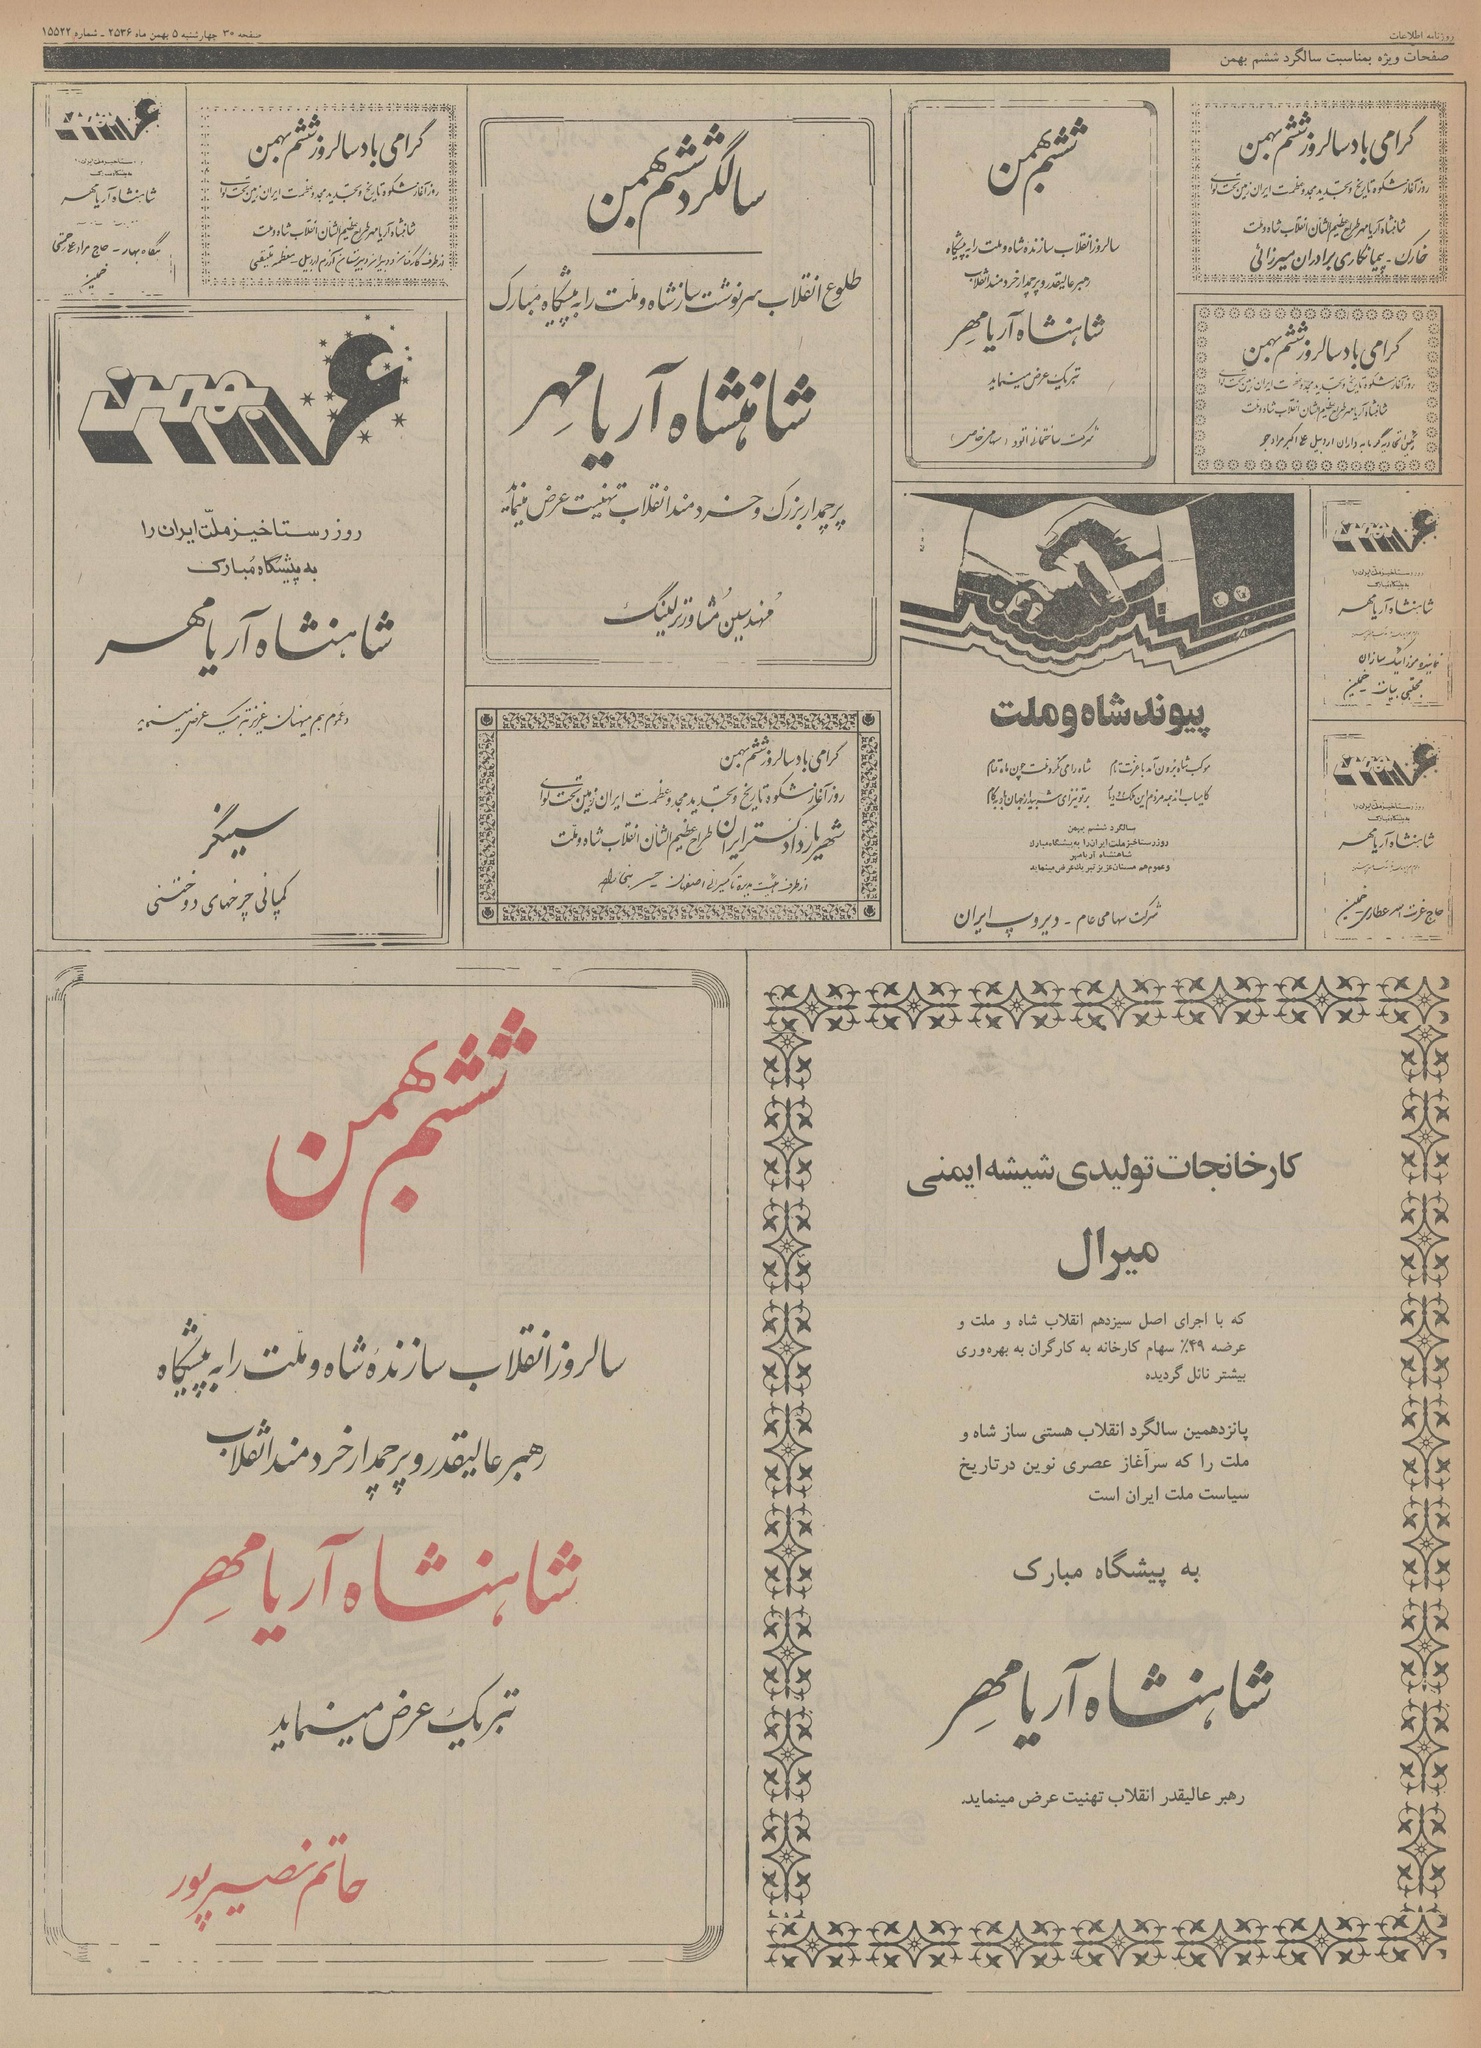 روزنامه اطلاعات
صفحه ۳۰ چهارشنبه ۵ بهمن ماه ۲۵۳۶ ـ شماره ۱۵۵۲۲
صفحات ویژه بمناسبت سالگرد ششم بهمن
گرامی باد سالروز ششم بهمن
روز آغاز شکوه تاریخ و تجدید مجد و عظمت ایران زمین تحت لوای
شاهنشاه آریامهر طراح عظیم الشان انقلاب شاه و ملت
خارک ـ پیمانکاری برادران میرزائی
گرامی باد سالروز ششم بهمن
روز آغاز شکوه تاریخ و تجدید مجد و عظمت ایران زمین تحت لوای
شاهنشاه آریامهر طراح عظیم الشان انقلاب شاه و ملت
ششم بهمن
سالروز انقلاب سازنده شاه و ملت را به پیشگاه
رهبر عالیقدر و پرچمدار خردمند انقلاب
شاهنشاه آریامهر
تبریک عرض مینماید
سالگرد ششم بهمن
طلوع انقلاب سرنوشت ساز شاه و ملت را به پیشگاه مبارک
شاهنشاه آریامهر
پرچمدار بزرگ و خردمند انقلاب تهنیت عرض مینماید
گرامی باد سالروز ششم بهمن
روز آغاز شکوه تاریخ و تجدید مجد و عظمت ایران زمین تحت لوای
شاهنشاه آریامهر طراح عظیم الشان انقلاب شاه و ملت
۶ بهمن
شاهنشاه آریامهر
خمین
۶ بهمن
روز رستاخیز ملت ایران را
به پیشگاه مبارک
شاهنشاه آریامهر
و عموم هم میهنان عزیز تبریک عرض مینماید
سینگر
کمپانی چرخهای دوختنی
گرامی باد سالروز ششم بهمن
روز آغاز شکوه تاریخ و تجدید مجد و عظمت ایران زمین تحت لوای
شهریار دادگستر ایران طراح عظیم الشان انقلاب شاه و ملت
پیوند شاه و ملت
سالگرد ششم بهمن
روز رستاخیز ملت ایران را به پیشگاه مبارک
شاهنشاه آریامهر
شرکت سهامی عام ـ دیروپ ایران
۶ بهمن
روز رستاخیز ملت ایران را
به پیشگاه مبارک
شاهنشاه آریامهر
مجتبی بیات ـ خمین
۶ بهمن
روز رستاخیز ملت ایران را
به پیشگاه مبارک
شاهنشاه آریامهر
کارخانجات تولیدی شیشه ایمنی
میرال
که با اجرای اصل سیزدهم انقلاب شاه و ملت و
عرضه ۴۹٪ سهام کارخانه به کارگران به بهره‌وری
بیشتر نائل گردیده
پانزدهمین سالگرد انقلاب هستی ساز شاه و
ملت را که سرآغاز عصری نوین درتاریخ
سیاست ملت ایران است
به پیشگاه مبارک
شاهنشاه آریامهر
رهبر عالیقدر انقلاب تهنیت عرض مینماید.
ششم بهمن
سالروز انقلاب سازنده شاه و ملت را به پیشگاه
رهبر عالیقدر و پرچمدار خردمند انقلاب
شاهنشاه آریامهر
تبریک عرض مینماید
حاتم نصیرپور